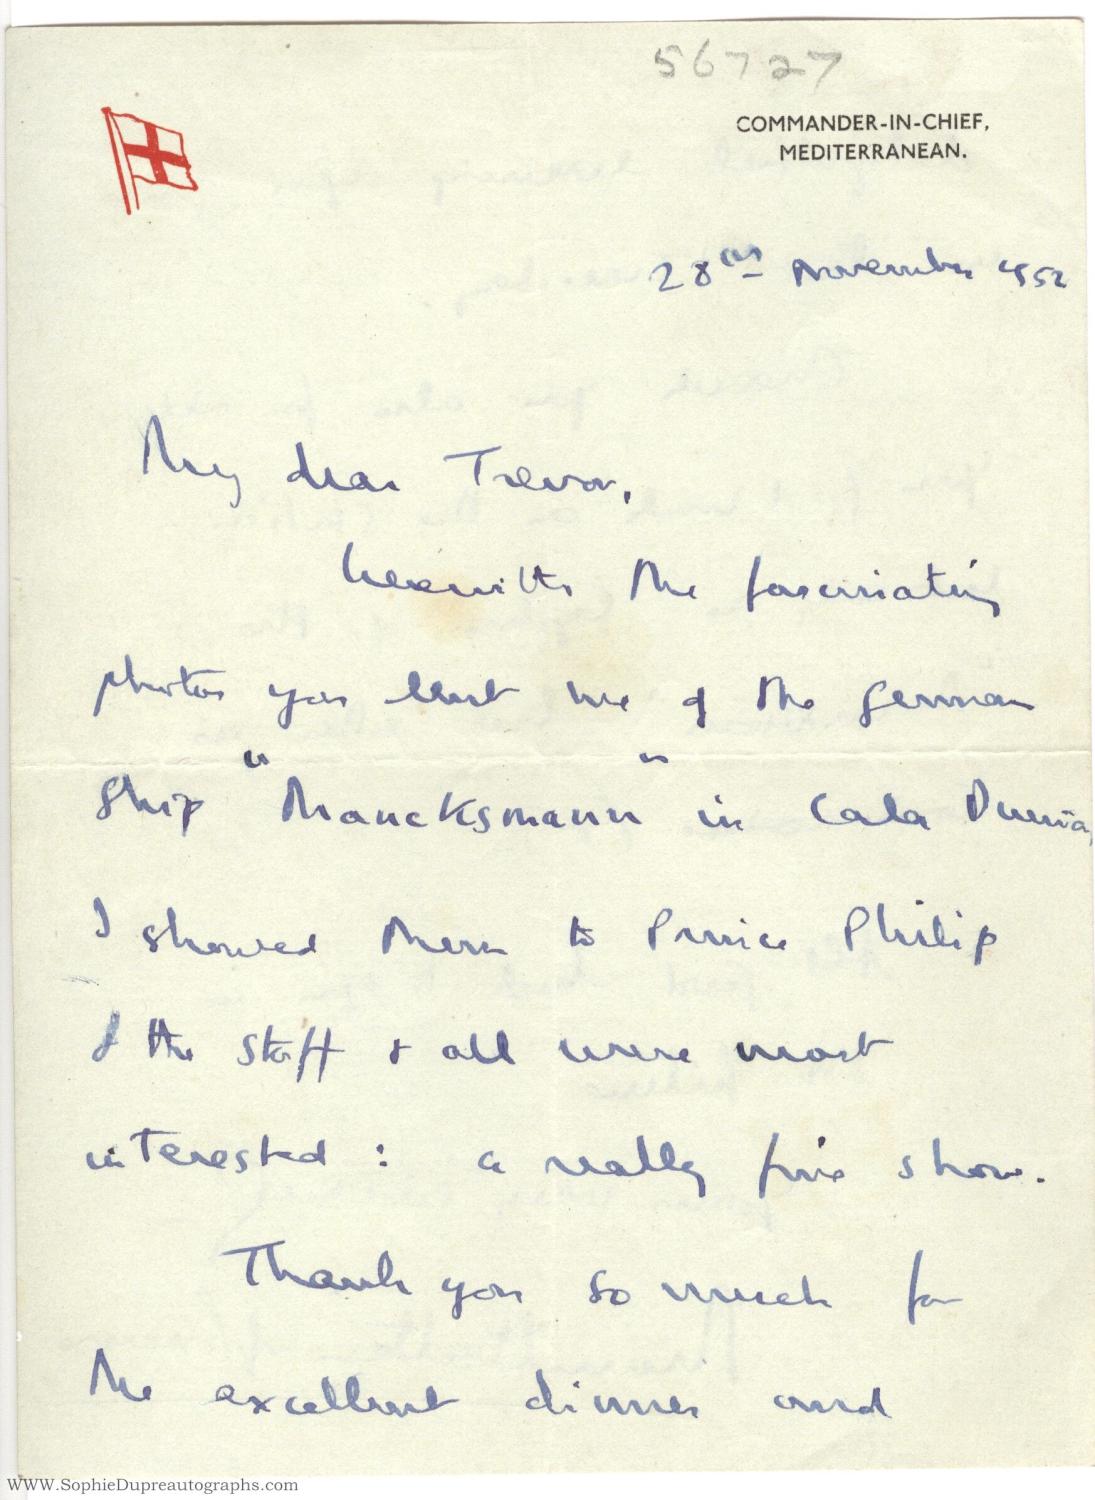 56727
COMMANDER-IN-CHIEF,
MEDITERRANEAN.
28th November 1952
My dear Trevor,
herewith the fascinating
photos you lent me of the German
Ship "Mancksmann" in Cala
I showed them to Prince Philip
& the Staff & all were most
interested : a really fine show.
Thank you so much for
the excellent dinner and
WWW.SophieDupreautographs.com